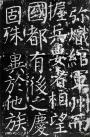 弥縮綰軍州而
握兵要者相望
國都有後之慶
固殊異於他族